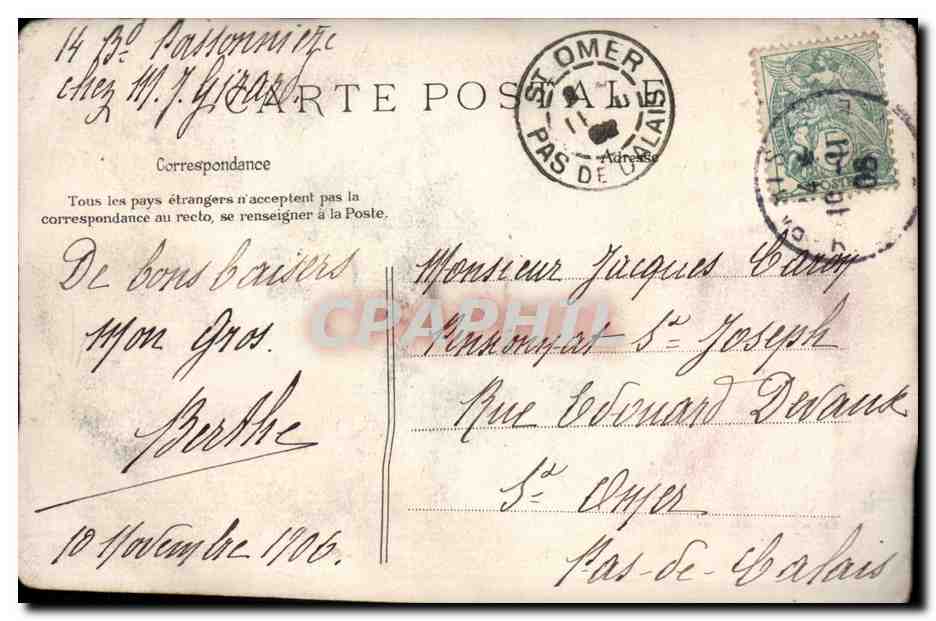 14 Bd Poissonnière
chez M. J. Girard.
CARTE POSTALE
ST OMER
PAS DE CALAIS
11
Adresse
Correspondance
Tous les pays étrangers n'acceptent pas la
correspondance au recto, se renseigner à la Poste.
De bons baisers
Mon Gros.
Berthe
10 Novembre 1906.
Monsieur Jacques Caron
Pensionnat St Joseph
Rue Edouard Devaux
St Omer
Pas-de-Calais
CPAPHIL